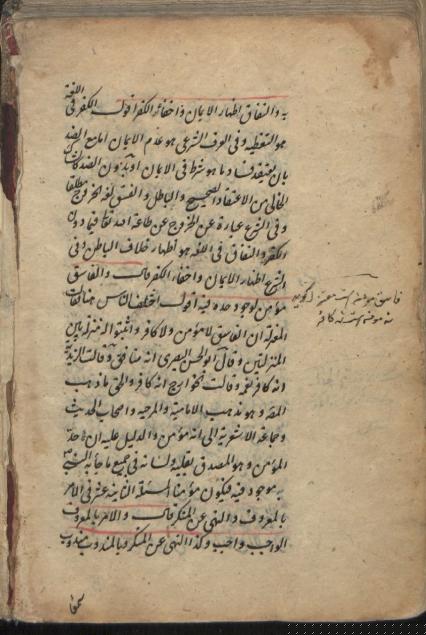 به والنفاق اظهار الایمان واخفاء الکفر اقول الکفر فی اللغة
هو التغطیه وفی العرف الشرعی هو عدم الایمان اما مع الضد
بان یعتقد فساد ما هو شرط فی الایمان او بدون الضد کالشاک
الخالی من الاعتقاد الصحیح والباطل والفسق لغة الخروج مطلقا
وفی الشرع عبارة عن الخروج عن طاعة الله تعالی فیما دون
الکفر والنفاق فی اللغه هو اظهار خلاف الباطن وفی
الشرع اظهار الایمان واخفاء الکفر قال والفاسق
مؤمن لوجود حده فیه اقول اختلف الناس هنا فقالت
المعتزلة ان الفاسق لا مؤمن ولا کافر واثبتوا له منزلة بین
المنزلتین وقال الحسن البصری انه منافق وقالت الزیدیة
انه کافر نعمه وقالت الخوارج انه کافر والحق ما ذهب الیه
المص وهو مذهب الامامیة والمرجئه واصحاب الحدیث
وجماعة الاشعریة الی انه مؤمن والدلیل علیه ان حد
المؤمن وهو المصدق بقلبه ولسانه فی جمیع ما جاء به النبی
به موجود فیه فیکون مؤمنا المسئلة السادسة عشر فی الامر
بالمعروف والنهی عن المنکر قال والامر بالمعروف
الواجب واجب وکذا النهی عن المنکر وبالمندوب مندوب
فاسق مؤمن است معتزله گویند
نه مؤمن است نه کافر
سمعا